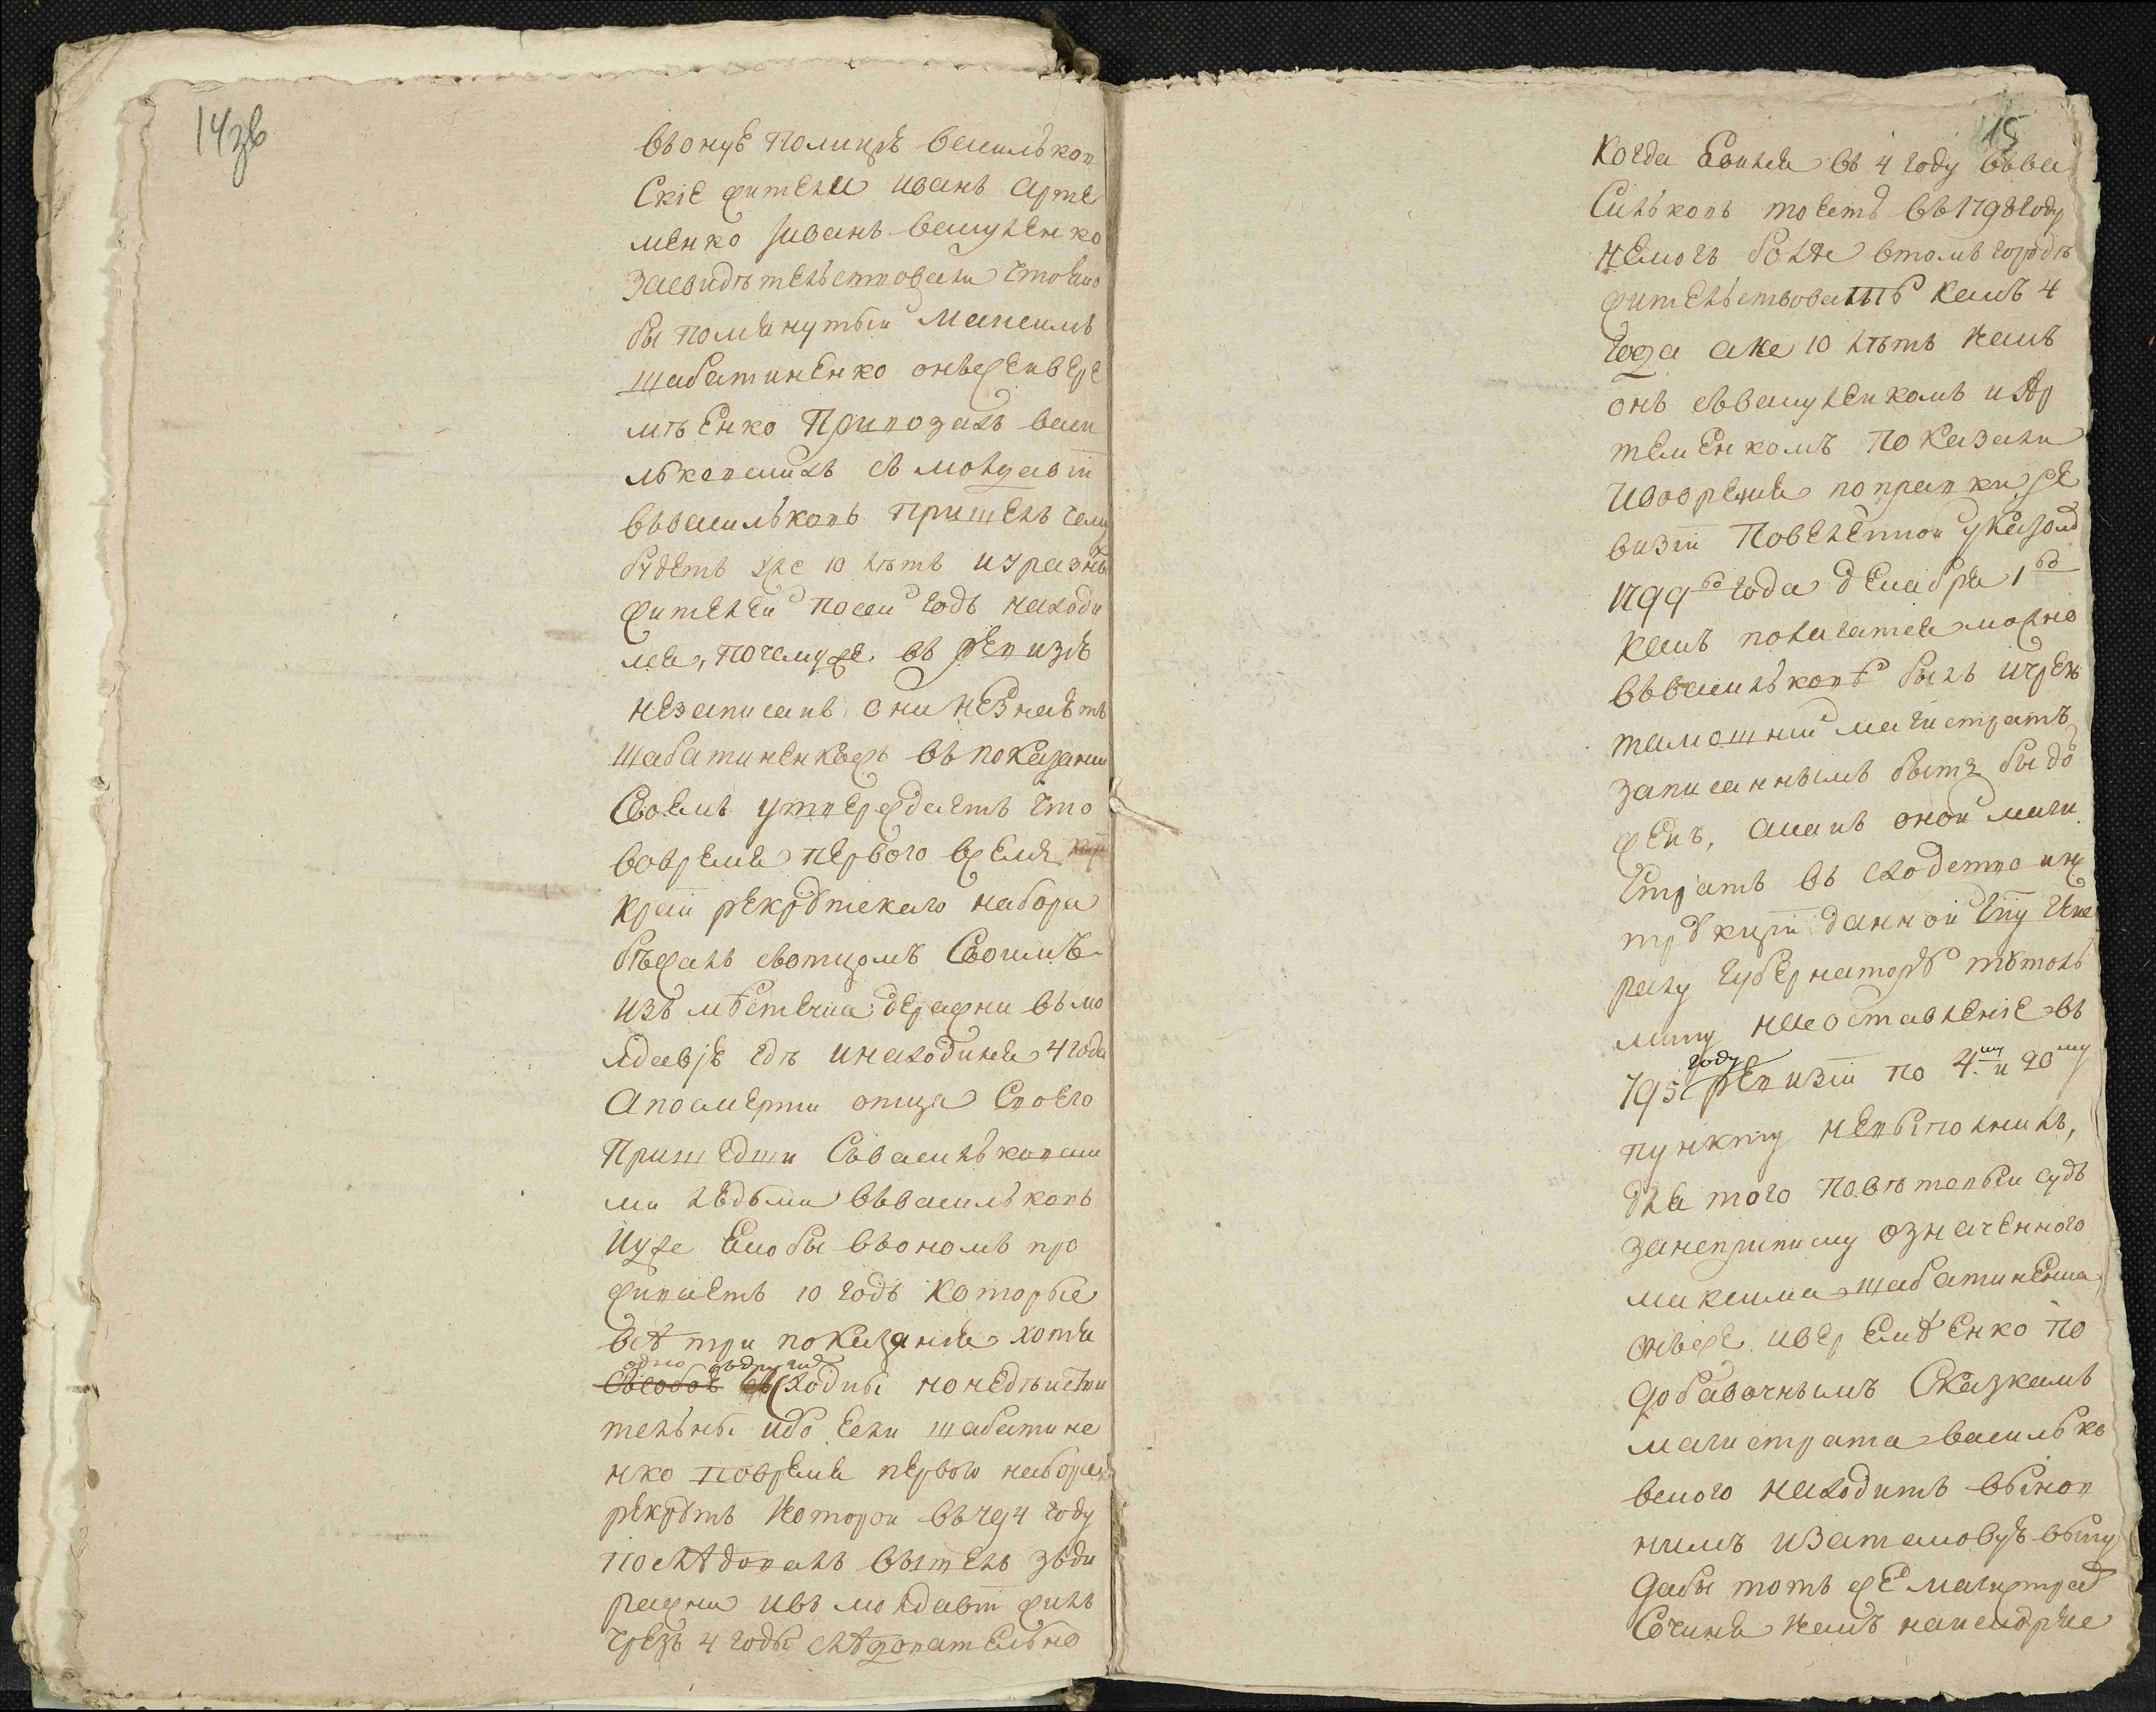 14зв
въ онуѣ полицѣ василькоп
скіе жители иванъ арте
менко ꙇиванъ вашуленко
засвидѣтельствовали что ибо
бы помянутый максимъ
шабатиненко онъже ивере
мѣенко приповалъ васи
льковлихъ съ молдавіи
въ васильковъ пришелъ чему
будетъ уже 10 лѣтъ и у разныхъ
жителей по сей годъ находи
лся, почемуже въ ревизѣ
незаписанъ они незнаетъ
шабатиненкожъ въ показаніи
своемъ утверждаетъ что
вовремя первого время
краіи рекрутскаго набора
бѣжалъ съ отцомъ своимъ
изъ мѣстечка деражни въ мо
лдавѣе гдѣ и находился 4 года
а по смерти отца своего
пришедши съ васильковски
ми людьми въ васильковъ
и уже ему бы въ ономъ про
живаетъ 10 годъ которые
всѣ три показанія хотя
одно съ другимъ
сходны но недѣйстви
тельны ибо если шабатине
нко повремя первого набора
рекрутъ которой въ 794 году
послѣдовалъ вышелъ зъ де
ражни и въ молдавіи жилъ
чрезъ 4 годы слѣдовательно
15
Когда бъ онъ въ 4 году въ ва
сильковъ то есть въ 1798 году
немогъ болѣе втомъ городѣ
жительствовать какъ 4
года а не 10 лѣтъ какъ
онъ съ вашуленкомъ и Ар
теменкомъ показали
и вовремя поправки ре
визіи повеленной указомъ
1799го года декабря 1го
какъ полагается можно
въ васильковѣ былъ и чрезъ
тамошній магистратъ
записаннымъ быть бы до
женъ, а какъ оной маги
стратъ въ сходство ин
трукціи данной
губернаторѣ
неоставленіе въ
795 году ревизіи по 4му и 20му
пункту невыполнилъ,
для того повѣтовый судъ
занеприпиcку означенного
максима шабатиненка
онъже и веремѣенко по
добавочнымъ сказкамъ
магистрата васильков
скаго находитъ
дабы тотъ же магистрат